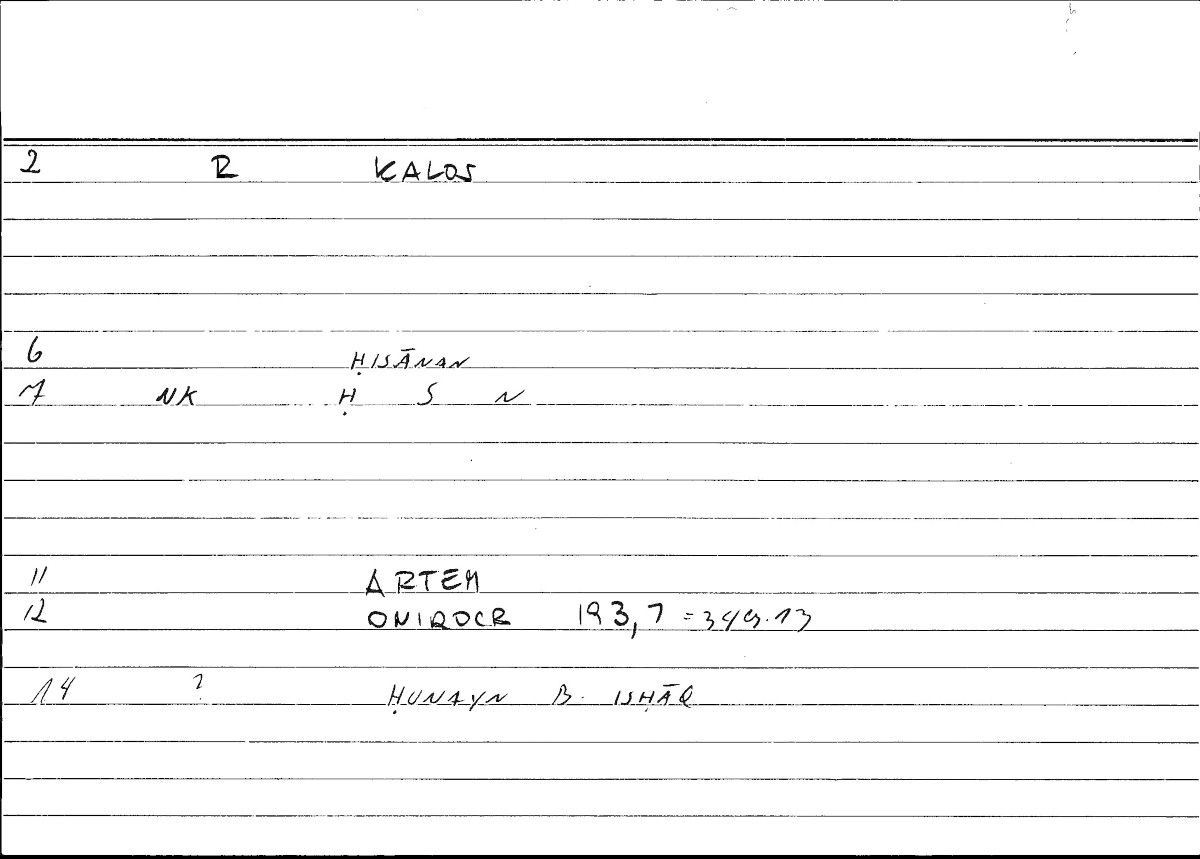 2 R KALOS
6 ḤISĀNAN
7 NK Ḥ S N
11 ARTEM
12 ONIROCR 193,7 = 349.13
14 ? ḤUNAYN B. ISḤĀQ